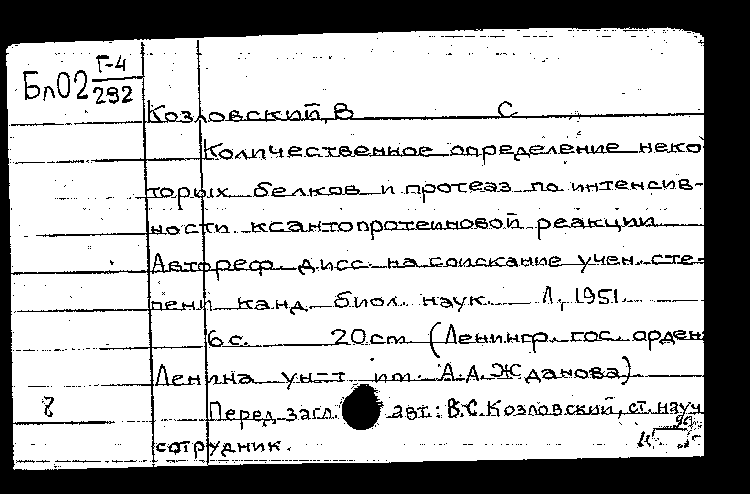 Бл02 Г-4
292
Козловский, В С.
Количественное определение неко
торых белков и протеаз по интенсив-
ности ксантопротеиновой реакции
Автореф. дисс. на соискание учен. сте-
пени канд. биол. наук. Л., 1951.
6 с. 20 cm (Ленингр. гос. ордена
Ленина ун-т им. А.А. Жданова)
8 Перед загл. авт.: В.С. Козловский, ст. науч
сотрудник.